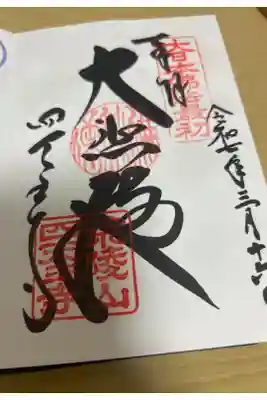 令和七年三月十
大日本佛法最初
奉拝
大悲殿
四天王寺
荒陵山
四天王寺